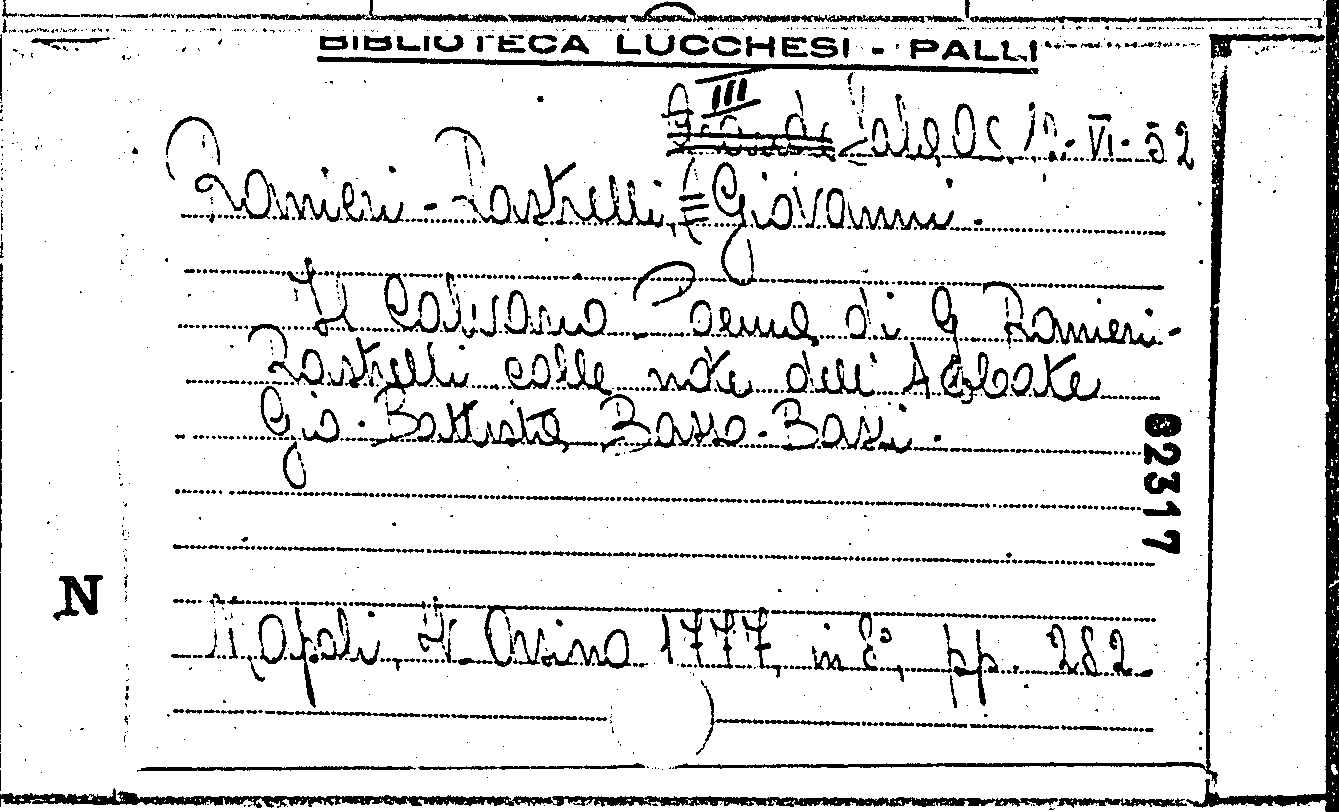 BIBLIOTECA LUCCHESI - PALLI
III
Sala, Oc. 12-VI-52
Ranieri-Rastrelli, Giovanni.
Il Calvario Poema di G Ranieri-
Rastrelli colle note dell' Abbate
Gio. Battista Basso-Bassi.
82317
N
Napoli, Orsino 1777, in 8°, pp. 282